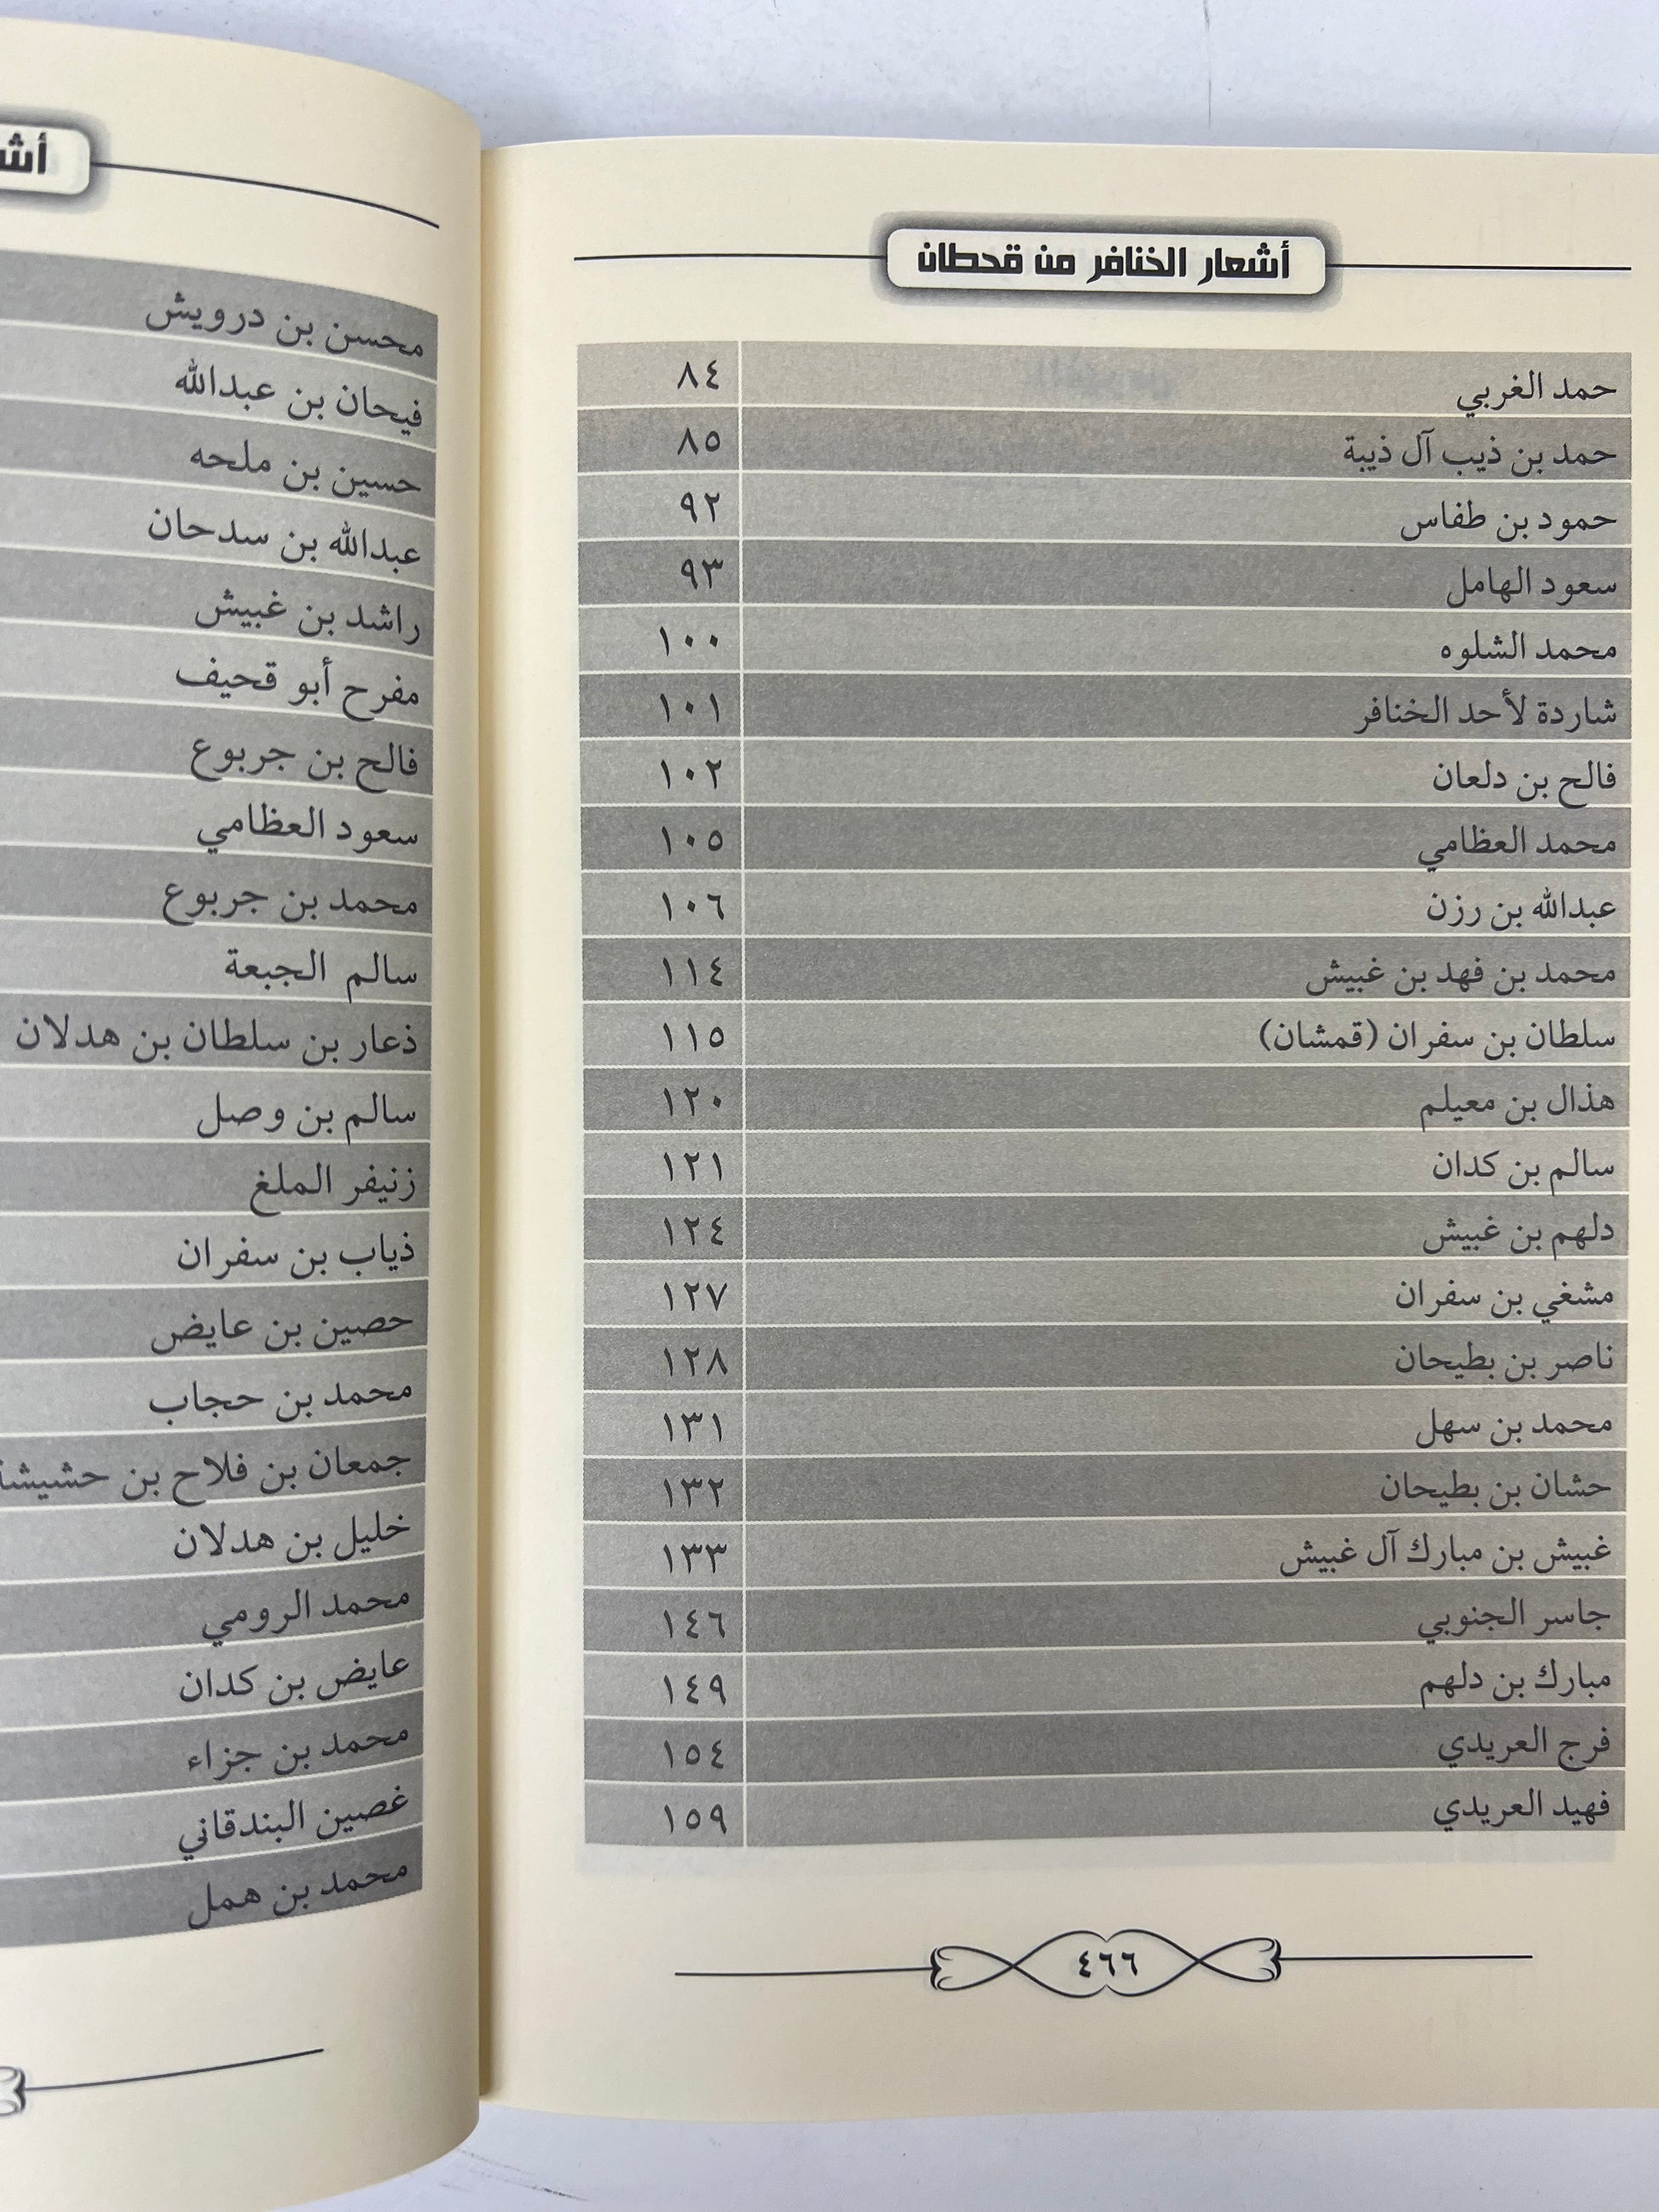 أشعار الخنافر من قحطان
حمد الغربي ٨٤
حمد بن ذيب آل ذيبة ٨٥
حمود بن طفاس ٩٢
سعود الهامل ٩٣
محمد الشلوه ١٠٠
شاردة لأحد الخنافر ١٠١
فالح بن دلعان ١٠٢
محمد العظامي ١٠٥
عبدالله بن رزن ١٠٦
محمد بن فهد بن غبيش ١١٤
سلطان بن سفران (قمشان) ١١٥
هذال بن معيلم ١٢٠
سالم بن كدان ١٢١
دلهم بن غبيش ١٢٤
مشغي بن سفران ١٢٧
ناصر بن بطيحان ١٢٨
محمد بن سهل ١٣١
حشان بن بطيحان ١٣٢
غبيش بن مبارك آل غبيش ١٣٣
جاسر الجنوبي ١٤٦
مبارك بن دلهم ١٤٩
فرج العريدي ١٥٤
فهيد العريدي ١٥٩
٤٦٦
محسن بن درويش
فيحان بن عبدالله
حسين بن ملحه
عبدالله بن سدحان
راشد بن غبيش
مفرح أبو قحيف
فالح بن جربوع
سعود العظامي
محمد بن جربوع
سالم الجبعة
ذعار بن سلطان بن هدلان
سالم بن وصل
زنيفر الملغ
ذياب بن سفران
حصين بن عايض
محمد بن حجاب
جمعان بن فلاح بن
خليل بن هدلان
محمد الرومي
عايض بن كدان
محمد بن جزاء
غصين البندقاني
محمد بن همل